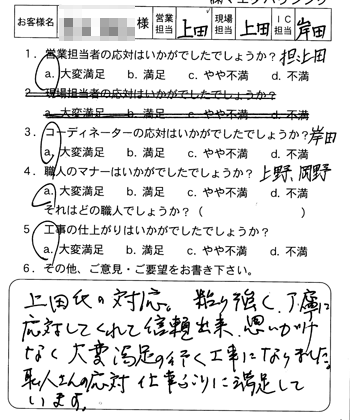 ㈱マエダハウジング
お客様名 様 営業担当 上田 現場担当 上田 IC担当 岸田
1．営業担当者の応対はいかがでしたでしょうか？ 担:上田
a. 大変満足 b. 満足 c. やや不満 d. 不満
2．現場担当者の応対はいかがでしたでしょうか？
a. 大変満足 b. 満足 c. やや不満 d. 不満
3．コーディネーターの応対はいかがでしたでしょうか？ 岸田
a. 大変満足 b. 満足 c. やや不満 d. 不満
4．職人のマナーはいかがでしたでしょうか？ 上野、岡野
a. 大変満足 b. 満足 c. やや不満 d. 不満
それはどの職人でしょうか？（ ）
5 工事の仕上がりはいかがでしたでしょうか？
a. 大変満足 b. 満足 c. やや不満 d. 不満
6．その他、ご意見・ご要望をお書き下さい。
上田氏の対応。粘り強く、丁寧に
応対してくれて信頼出来、思いがけ
なく大変満足の行く工事になりました。
職人さんの応対 仕事ぶりに満足して
います。